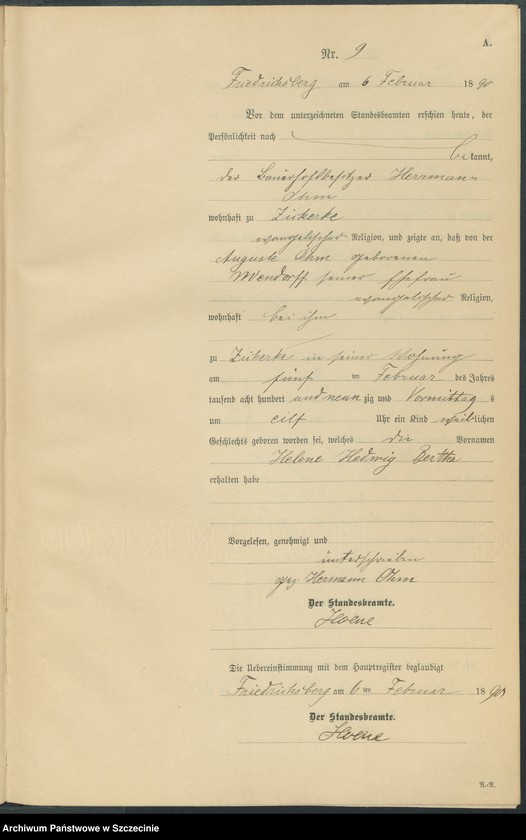 A.
Nr. 9
Friedrichsberg am 6 Februar 1890
Vor dem unterzeichneten Standesbeamten erschien heute, der
Persönlichkeit nach
bekannt,
der Bauerhofsbesitzer Herrmann
Ohm
wohnhaft zu Zickerke
evangelischer Religion, und zeigte an, daß von der
Auguste Ohm geborenen
Wendorff seiner Ehefrau
evangelischer Religion,
wohnhaft bei ihm
zu Zickerke in seiner Wohnung
am fünf ten Februar des Jahres
tausend acht hundert und neunzig und Vormittags
um eilf Uhr ein Kind weiblichen
Geschlechts geboren worden sei, welches die Vornamen
Helene Hedwig Bertha
erhalten habe
Vorgelesen, genehmigt und
unterschrieben
gez Hermann Ohm
Der Standesbeamte.
Die Uebereinstimmung mit dem Hauptregister beglaubigt
Friedrichsberg am 6ten Februar 1890
Der Standesbeamte.
R.-R.
Archiwum Państwowe w Szczecinie